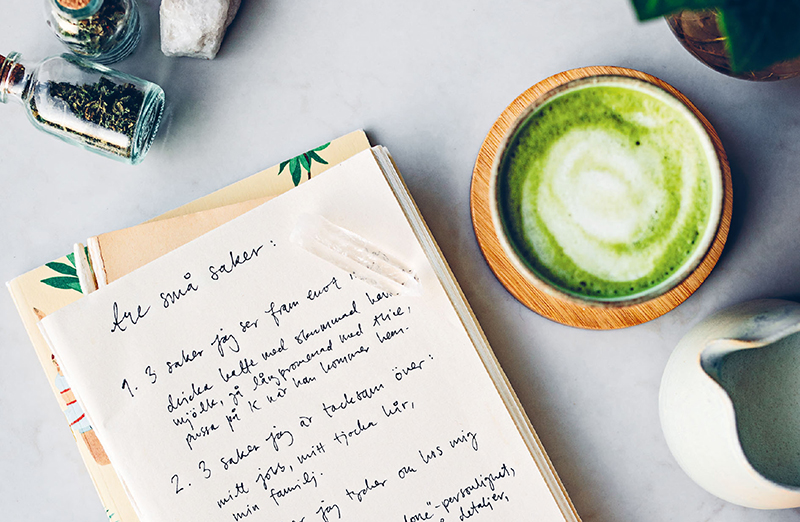 tre små saker:
1. 3 saker jag ser fram emot
dricka kaffe med skummad
mjölk, gå långpromenad med
pussa på K när han kommer hem.
2. 3 saker jag är tacksam över:
mitt jobb, mitt tjocka hår,
min familj.
jag tycker om hos mig
done"-personlighet,
detaljer,